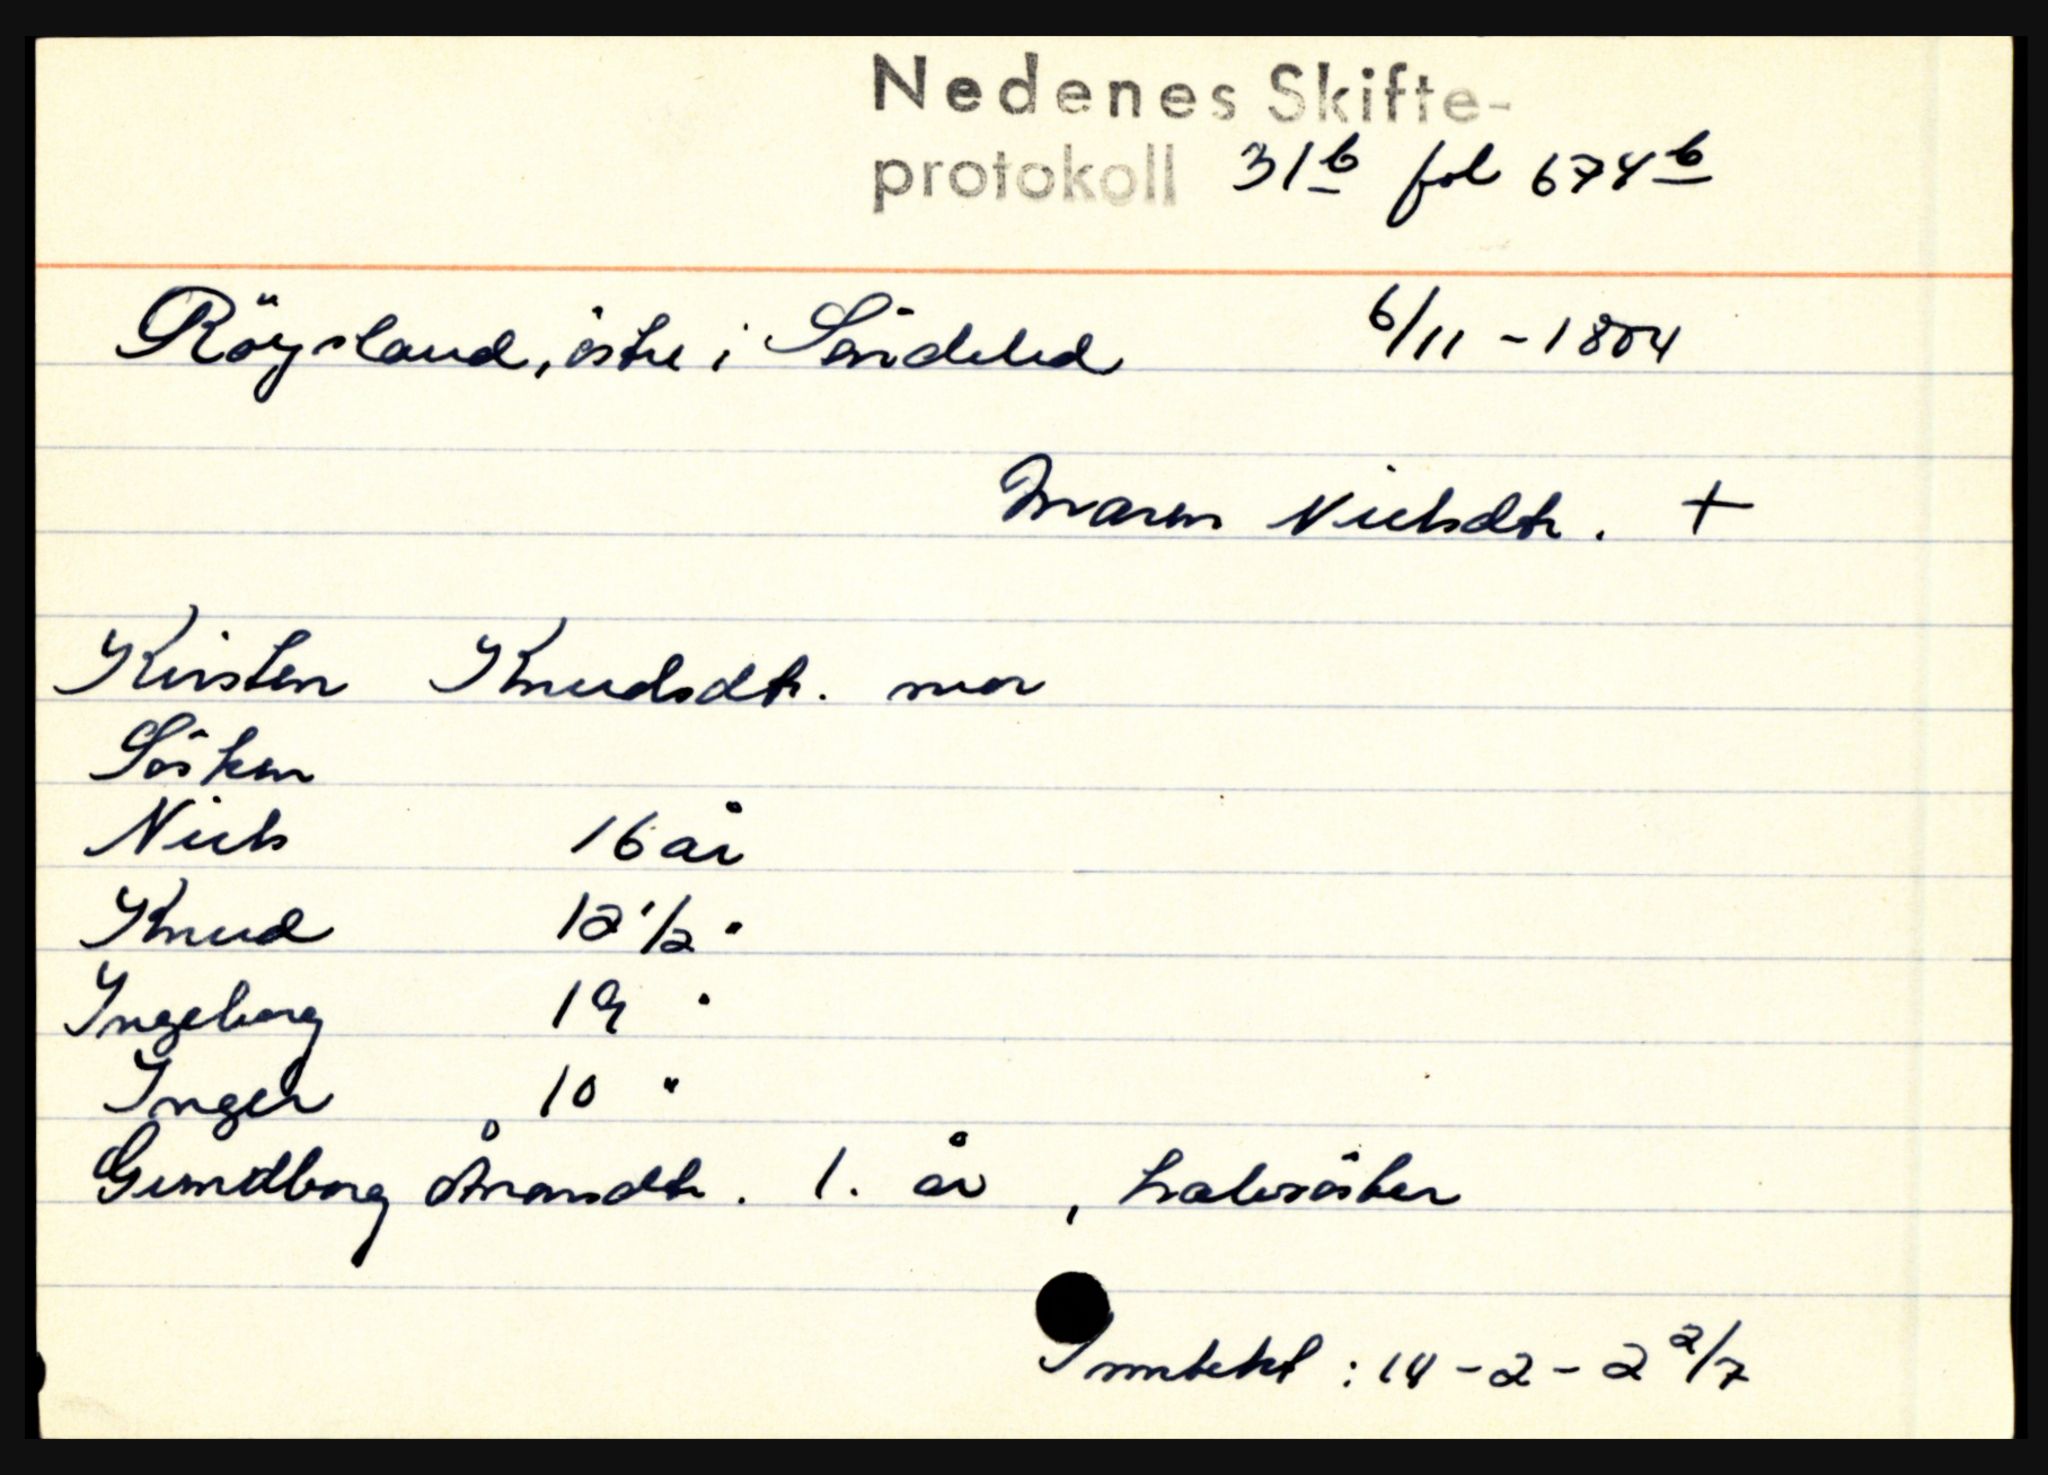 Nedenes Skifte-
protokoll 31b fol 674b
Röysland, östre i Söndeled 6/11 - 1804
Maren Nielsdtr. +
Kirsten Knudsdtr. mor
Sösken
Niels 16 år
Knud 12 1/2 "
Ingeborg 19 "
Inger 10 "
Gundborg Ånonsdtr. 1. år , halvsöster
Inntekt : 14 - 2 - 2 2/7